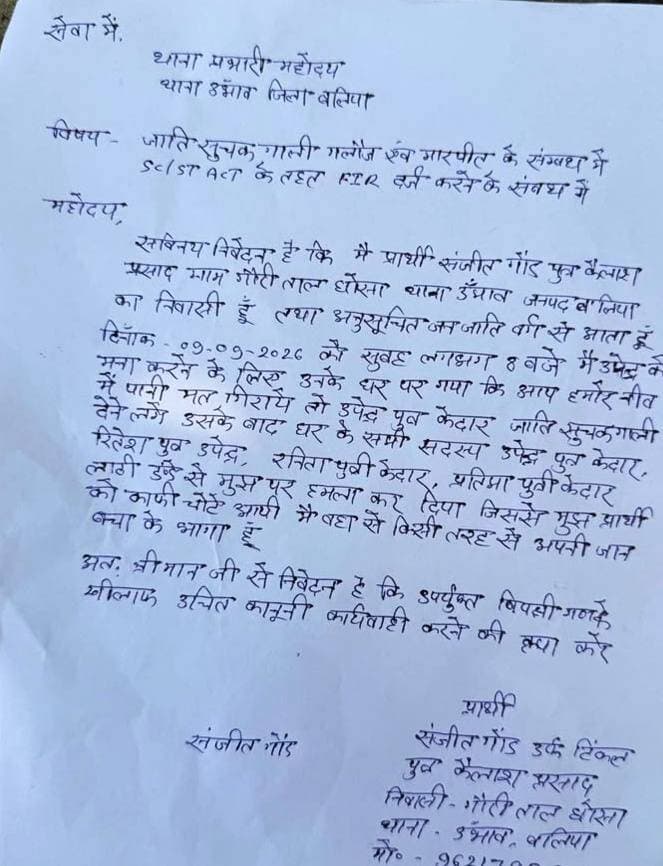 सेवा में,
थाना प्रभारी महोदय
थाना उभाँव जिला बलिया
विषय - जाति सूचक गाली गलौज एंव मारपीट के संम्बध में
SC/ST ACT के तहत FIR दर्ज करने के संबध में
महोदय,
सविनय निवेदन है कि मै प्रार्थी संजीत गोंड पुत्र कैलाश
प्रसाद ग्राम गौरी ताल घोसा थाना उँभाव जनपद बलिया
का निवासी हूँ तथा अनुसुचित जन जाति वर्ग से आता हूँ
दिनाँक - 09-09-2026 को सुबह लगभग 8 बजे मै उपेन्द्र के
मना करने के लिए उनके घर पर गया कि आप हमारे नीव
में पानी मत गिराये तो उपेन्द्र पुत्र केदार जाति सूचक गाली
देने लगे उसके बाद घर के सभी सदस्य उपेन्द्र पुत्र केदार,
रितेश पुत्र उपेन्द्र, रनिता पुत्री केदार, प्रतिमा पुत्री केदार
लाठी डंडे से मुझ पर हमला कर दिया जिससे मुझ प्रार्थी
को काफी चोटे आयी मै वहा से किसी तरह से अपनी जान
बचा के भागा हूँ
अत: श्रीमान जी से निवेदन है कि उपर्युक्त बिपक्षी गणके
खीलाफ उचित कानूनी कार्यवाही करने की क्रपा करे
प्रार्थी
संजीत गोंड
संजीत गोंड उर्फ टिंकल
पुत्र कैलाश प्रसाद
निवासी - गौरी ताल घोसा
थाना - उँभाव, बलिया
मो० -